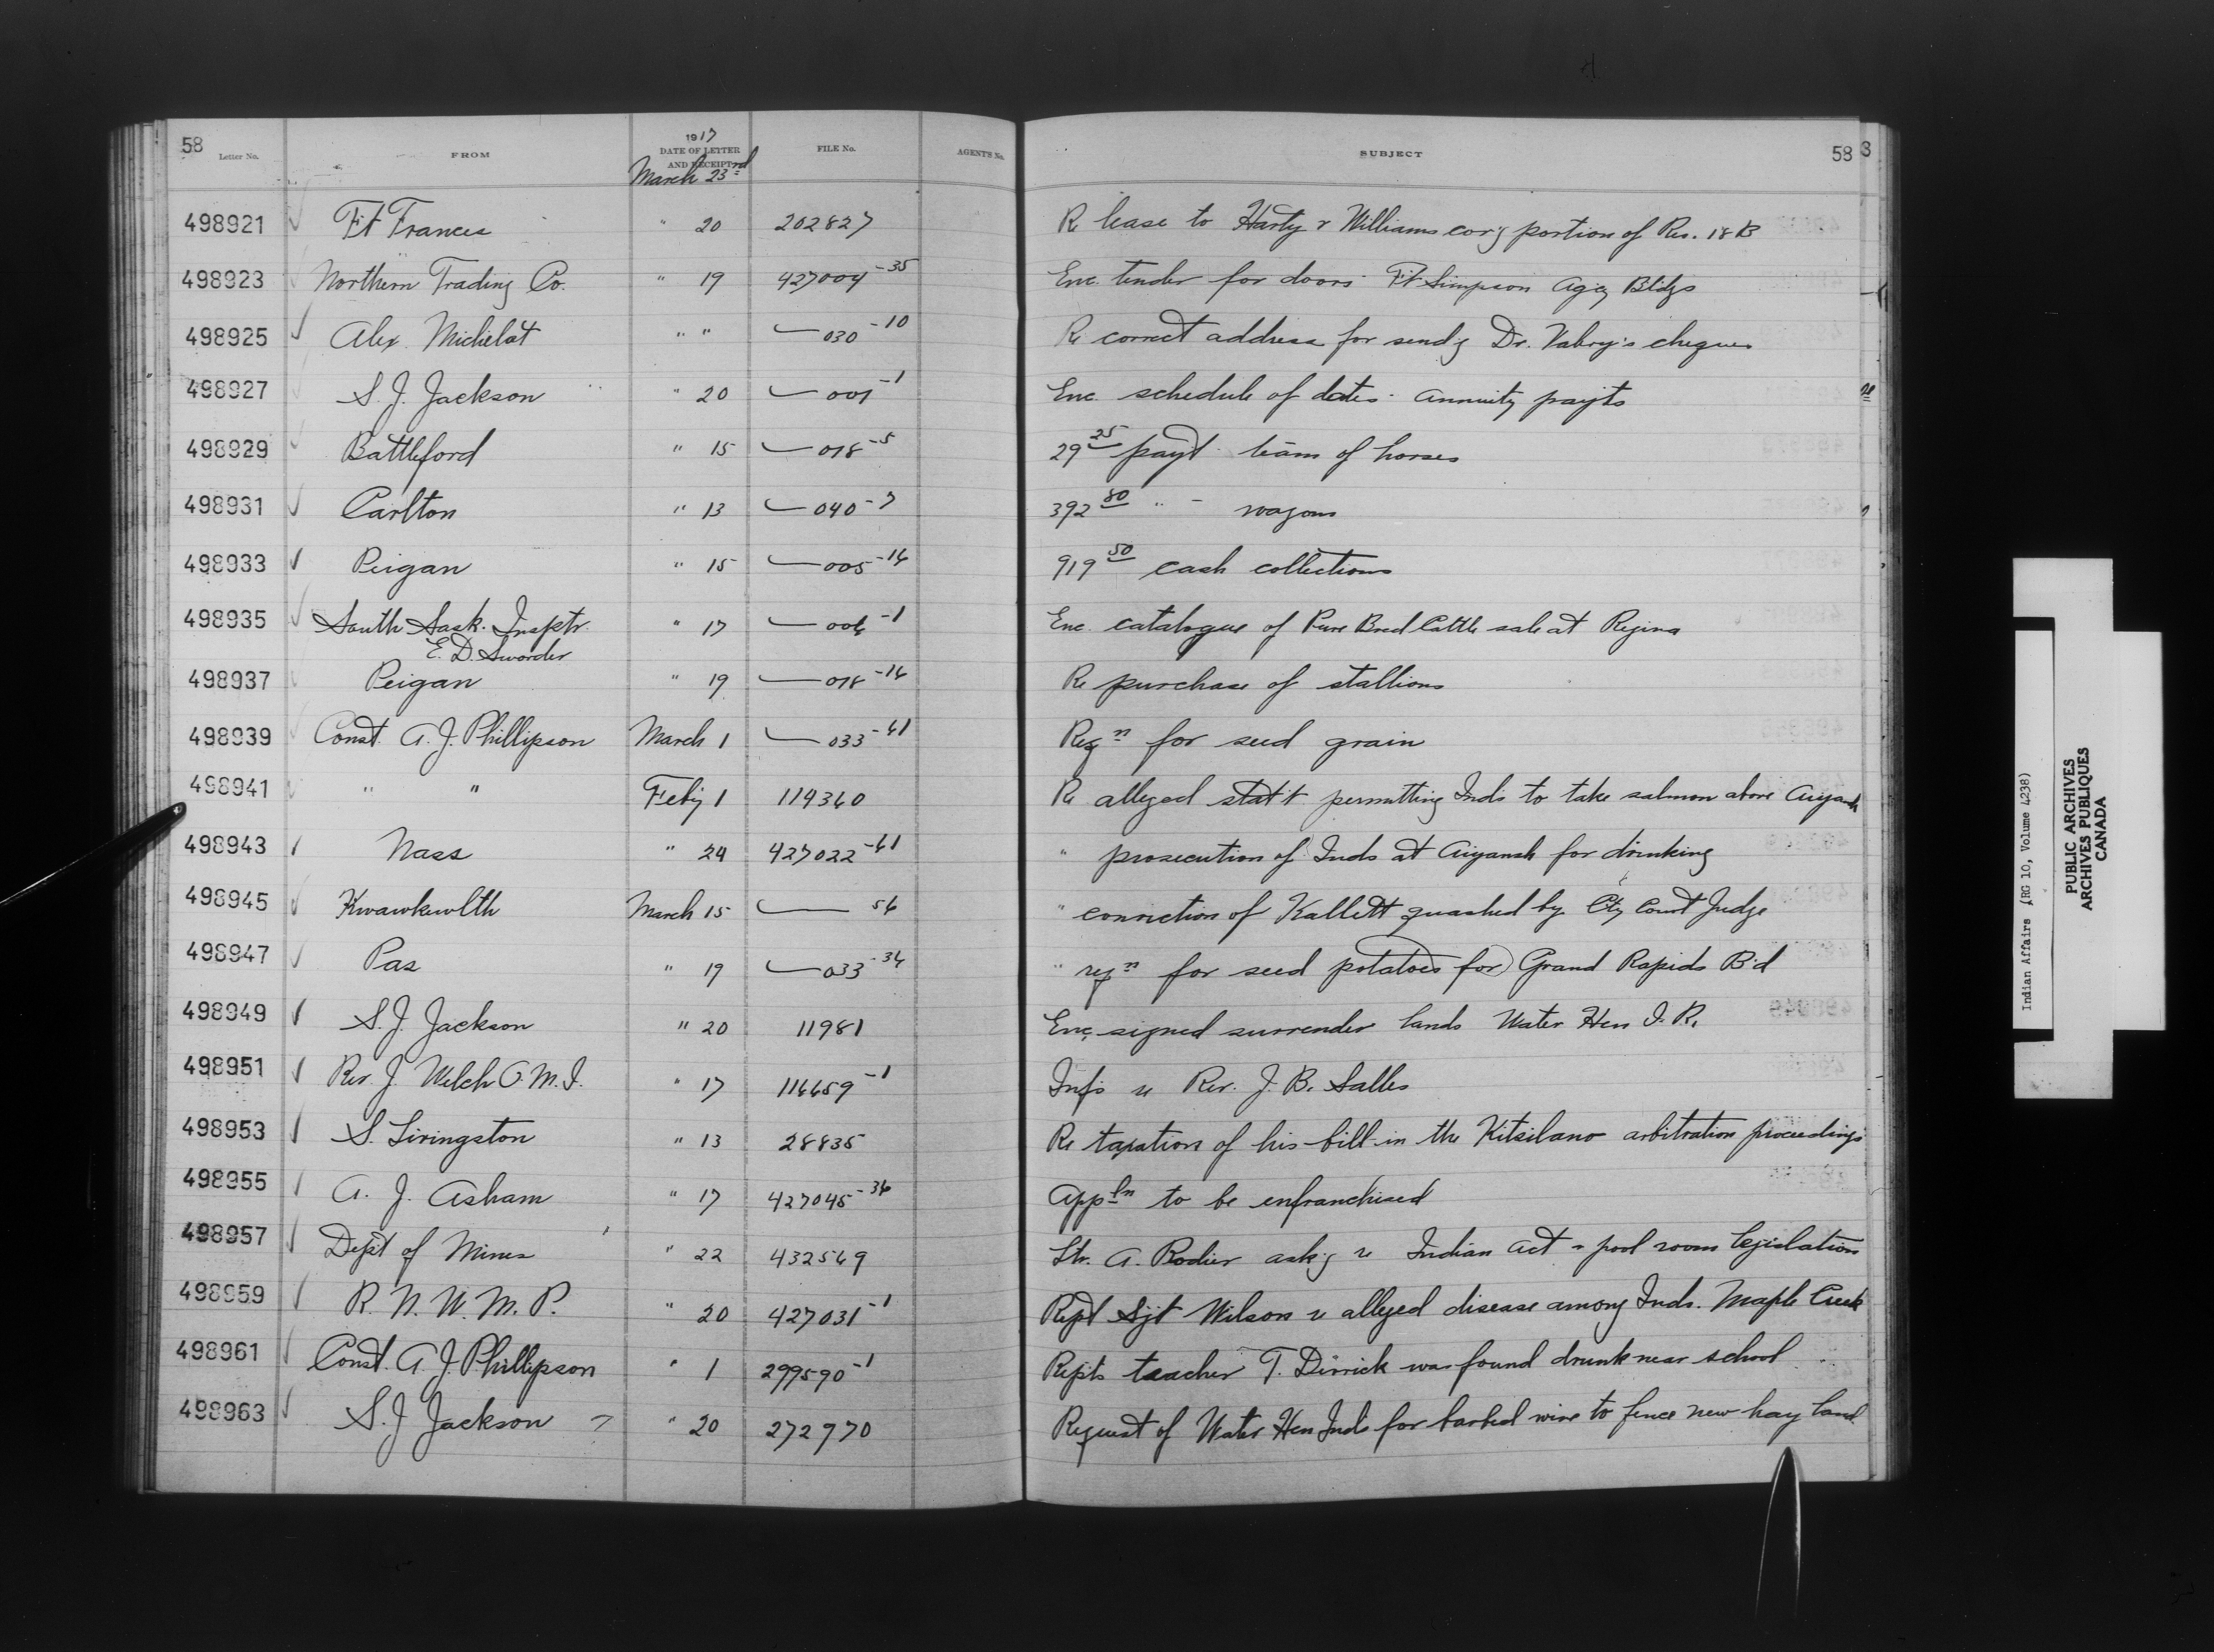 58 Letter No. FROM 1917 DATE OF LETTER AND RECEIPT FILE No. AGENT'S No. SUBJECT 58 3
March 23rd
498921 Ft Frances " 20 202827 Re lease to Harty & Williams cov'g portion of Res. 18B
498923 Northern Trading Co. " 19 427004-35 Enc. tender for doors Ft Simpson Agcy Bldgs
498925 Alex Michelet " " 030-10 Re correct address for send'g Dr. cheques
498927 S. J. Jackson " 20 001-1 Enc. schedule of dates - annuity payts
498929 Battleford " 15 018-5 29 25 payt team of horses
498931 Carlton " 13 040-7 392 80 " - wagons
498933 Peigan " 15 005-16 919 50 cash collections
498935 South Sask. Insptr. " 17 006-1 Enc. catalogue of Pure Bred Cattle sale at Regina
E. D. Sworder
498937 Peigan " 19 018-16 Re purchase of stallions
498939 Const. A. J. Phillipson March 1 033-61 Reqn for seed grain
498941 " " Feby 1 119360 Re alleged stat't permitting Inds to take salmon above Aiyansh
498943 Nass " 24 427022-61 " prosecution of Inds at Aiyansh for drinking
498945 Kwawkewlth March 15 56 " conviction of Kallett quashed by Cty Court Judge
498947 Pas " 19 033-36 " reqn for seed potatoes for Grand Rapids B'd
498949 S. J. Jackson " 20 11981 Enc. signed surrender lands Water Hen I. R.
498951 Rev. J. Welch O. M. I. " 17 116659-1 Inf's re Rev. J. B. Salles
498953 S. Livingston " 13 28835 Re taxation of his bill in the Kitsilano arbitration proceedings
498955 A. J. Asham " 17 427045-36 Appln to be enfranchised
498957 Dept of Mines " 22 432569 Ltr. A. Rodier ask'g re Indian Act - pool room legislation
498959 R. N. W. M. P. " 20 427031-1 Rept Sjt Wilson re alleged disease among Inds. Maple Creek
498961 Const. A. J. Phillipson " 1 299590-1 Repts teacher T. Dirrick was found drunk near school
498963 S. J Jackson " 20 272970 Request of Water Hen Inds for barbed wire to fence new hay land
Indian Affairs (RG 10, Volume 4238)
PUBLIC ARCHIVES
ARCHIVES PUBLIQUES
CANADA